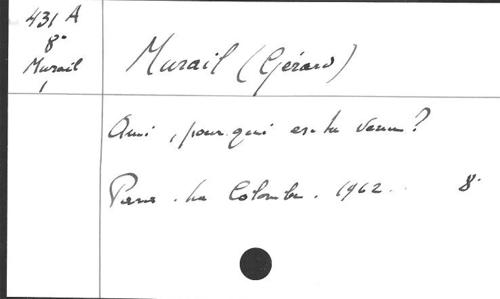 431 A
8°
Murail
1
Murail (Gérard)
Ami, pour qui es-tu venu ?
Paris. La Colombe. 1962. 8°